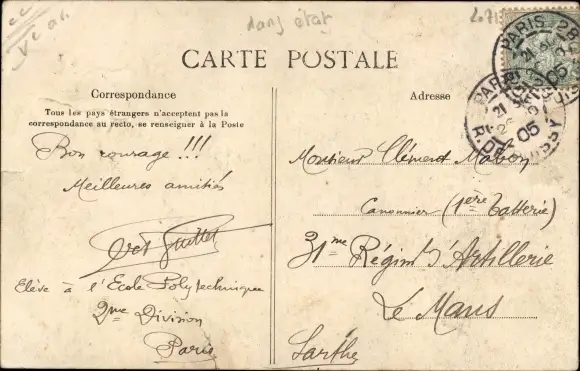 dans état
CARTE POSTALE
Correspondance
Tous les pays étrangers n'acceptent pas la
correspondance au recto, se renseigner à la Poste
Bon courage!!!
Meilleures amitiés
Guillet
Elève à l'Ecole Polytechnique
2me Division
Paris
Adresse
PARIS 28
05
PARIS
21
05
Monsieur Clément Mabon
Canonnier (1ère batterie)
31me Régimt d'Artillerie
Le Mans
Sarthe